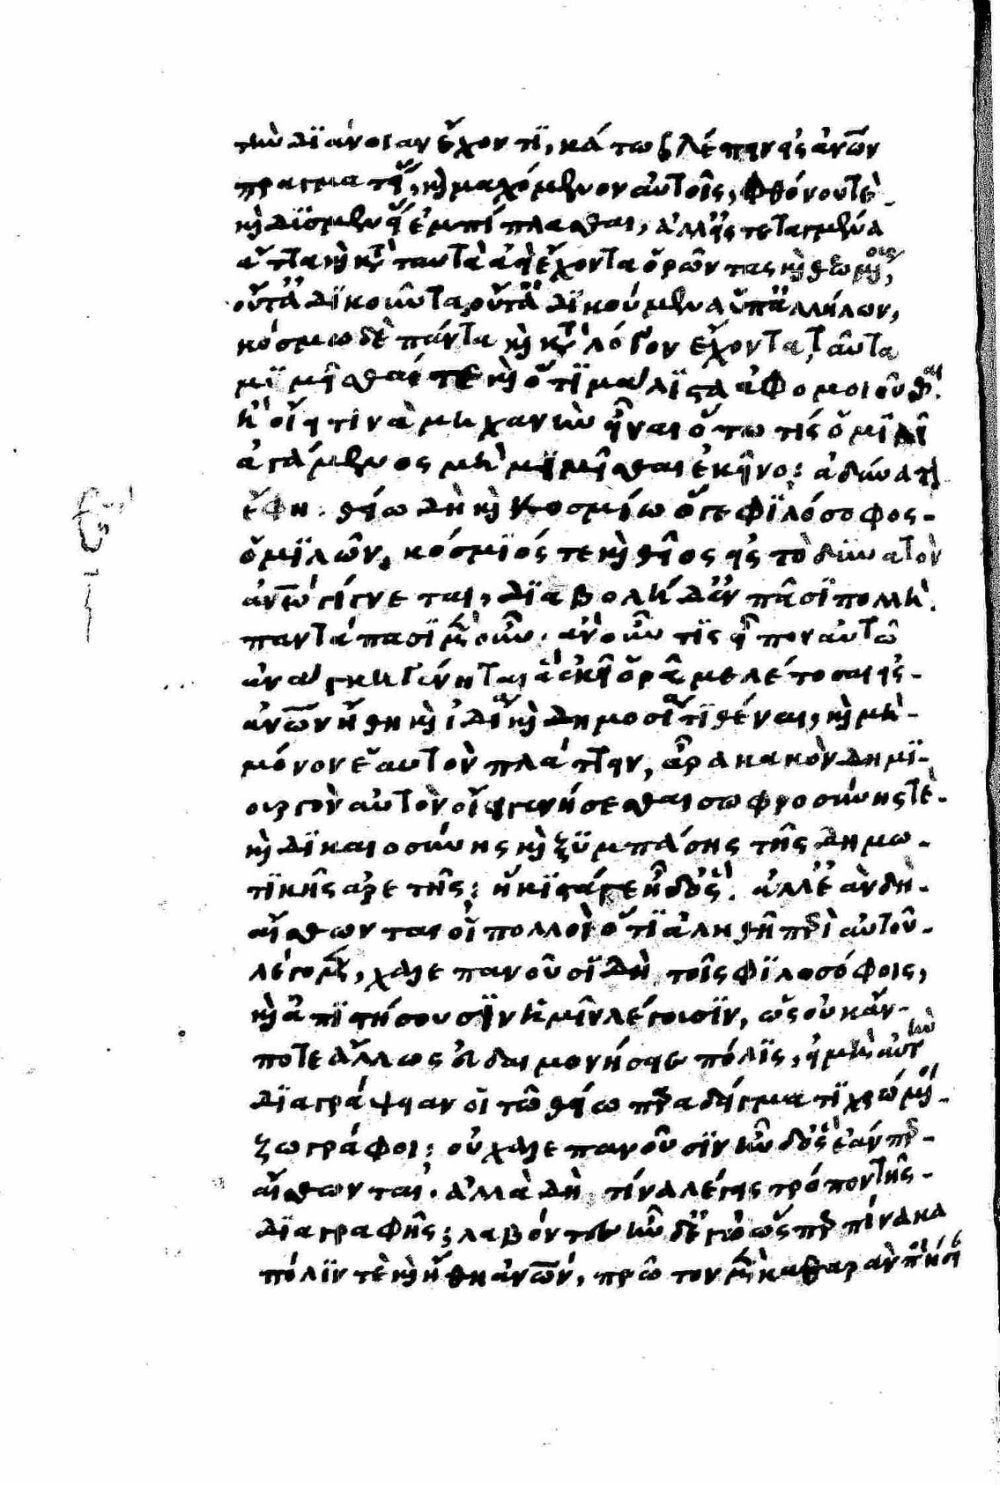 τὴν διάνοιαν ἔχοντι, κάτω βλέπειν εἰς ἀνων
πραγματείας, καὶ μαχόμενον αὐτοῖς, φθόνου τὲ
καὶ δυσμενείας ἐμπίπλασθαι, ἀλλ' εἰς τεταγμένα
ἄττα καὶ κατὰ ταυτὰ ἀεὶ ἔχοντα ὁρῶντας καὶ θεωμένους,
οὔτ' ἀδικοῦντα οὔτ' ἀδικούμενα ὑπ' ἀλλήλων,
κόσμω δὲ πάντα καὶ κατὰ λόγον ἔχοντα, ταῦτα
μιμεῖσθαί τε καὶ ὅτι μάλιστα ἀφομοιοῦσθαι.
ἢ οἴει τινὰ μηχανὴν εἶναι ὅτω τίς ὁμιλεῖ
ἀγάμενος μὴ μιμεῖσθαι ἐκεῖνο; ἀδύνατον
ἔφη. θείω δὴ καὶ κοσμίω ὅγε φιλόσοφος
ὁμιλῶν, κόσμιός τε καὶ θεῖος εἰς τὸ δυνατὸν
ἀνω γίγνεται, διαβολὴ δ' ἂν πᾶσι πολλὴ.
πανταπασι μὲν οὖν. ἀν οὖν τις εἶπον αὐτῶ
ἀνάγκη γένηται ἃ ἐκεῖ ὁρᾶ μελετῆσαι εἰς
ἀνων ἤθη καὶ ἰδία καὶ δημοσία τιθέναι, καὶ μὴ
μόνον ἑαυτὸν πλάττειν, ἆρα κακὸν δημι
ουργὸν αὐτὸν οἴει γενήσεσθαι σωφροσύνης τὲ
καὶ δικαιοσύνης καὶ ξυμπάσης τῆς δημο
τικῆς ἀρετῆς; ἥκιστά γε ἦ δ' ὅς. ἀλλ' ἐὰν δὴ
αἴσθωνται οἱ πολλοὶ ὅτι ἀληθῆ περὶ αὐτοῦ
λέγομεν, χαλεπανοῦσι δὴ τοῖς φιλοσόφοις,
καὶ ἀπιστήσουσιν ἡμῖν λέγουσιν, ὡς οὐκ ἄν
ποτε ἄλλως εὐδαιμονήσειε πόλις, εἰ μὴ αὐτὴν
διαγράψειαν οἱ τῶ θείω παραδείγματι χρώμενοι
ζωγράφοι; οὐ χαλεπανοῦσιν ἦν δ' ὃς ἐάν περ
αἴσθωνται. ἀλλὰ δὴ τίνα λέγεις τρόπον τῆς
διαγραφῆς; λαβόντες ἦν δ' ἐγὼ ὥσπερ πίνακα
πόλιν τὲ καὶ ἤθη ἀνων, πρῶτον μὲν καθαρὰν ποιήσει